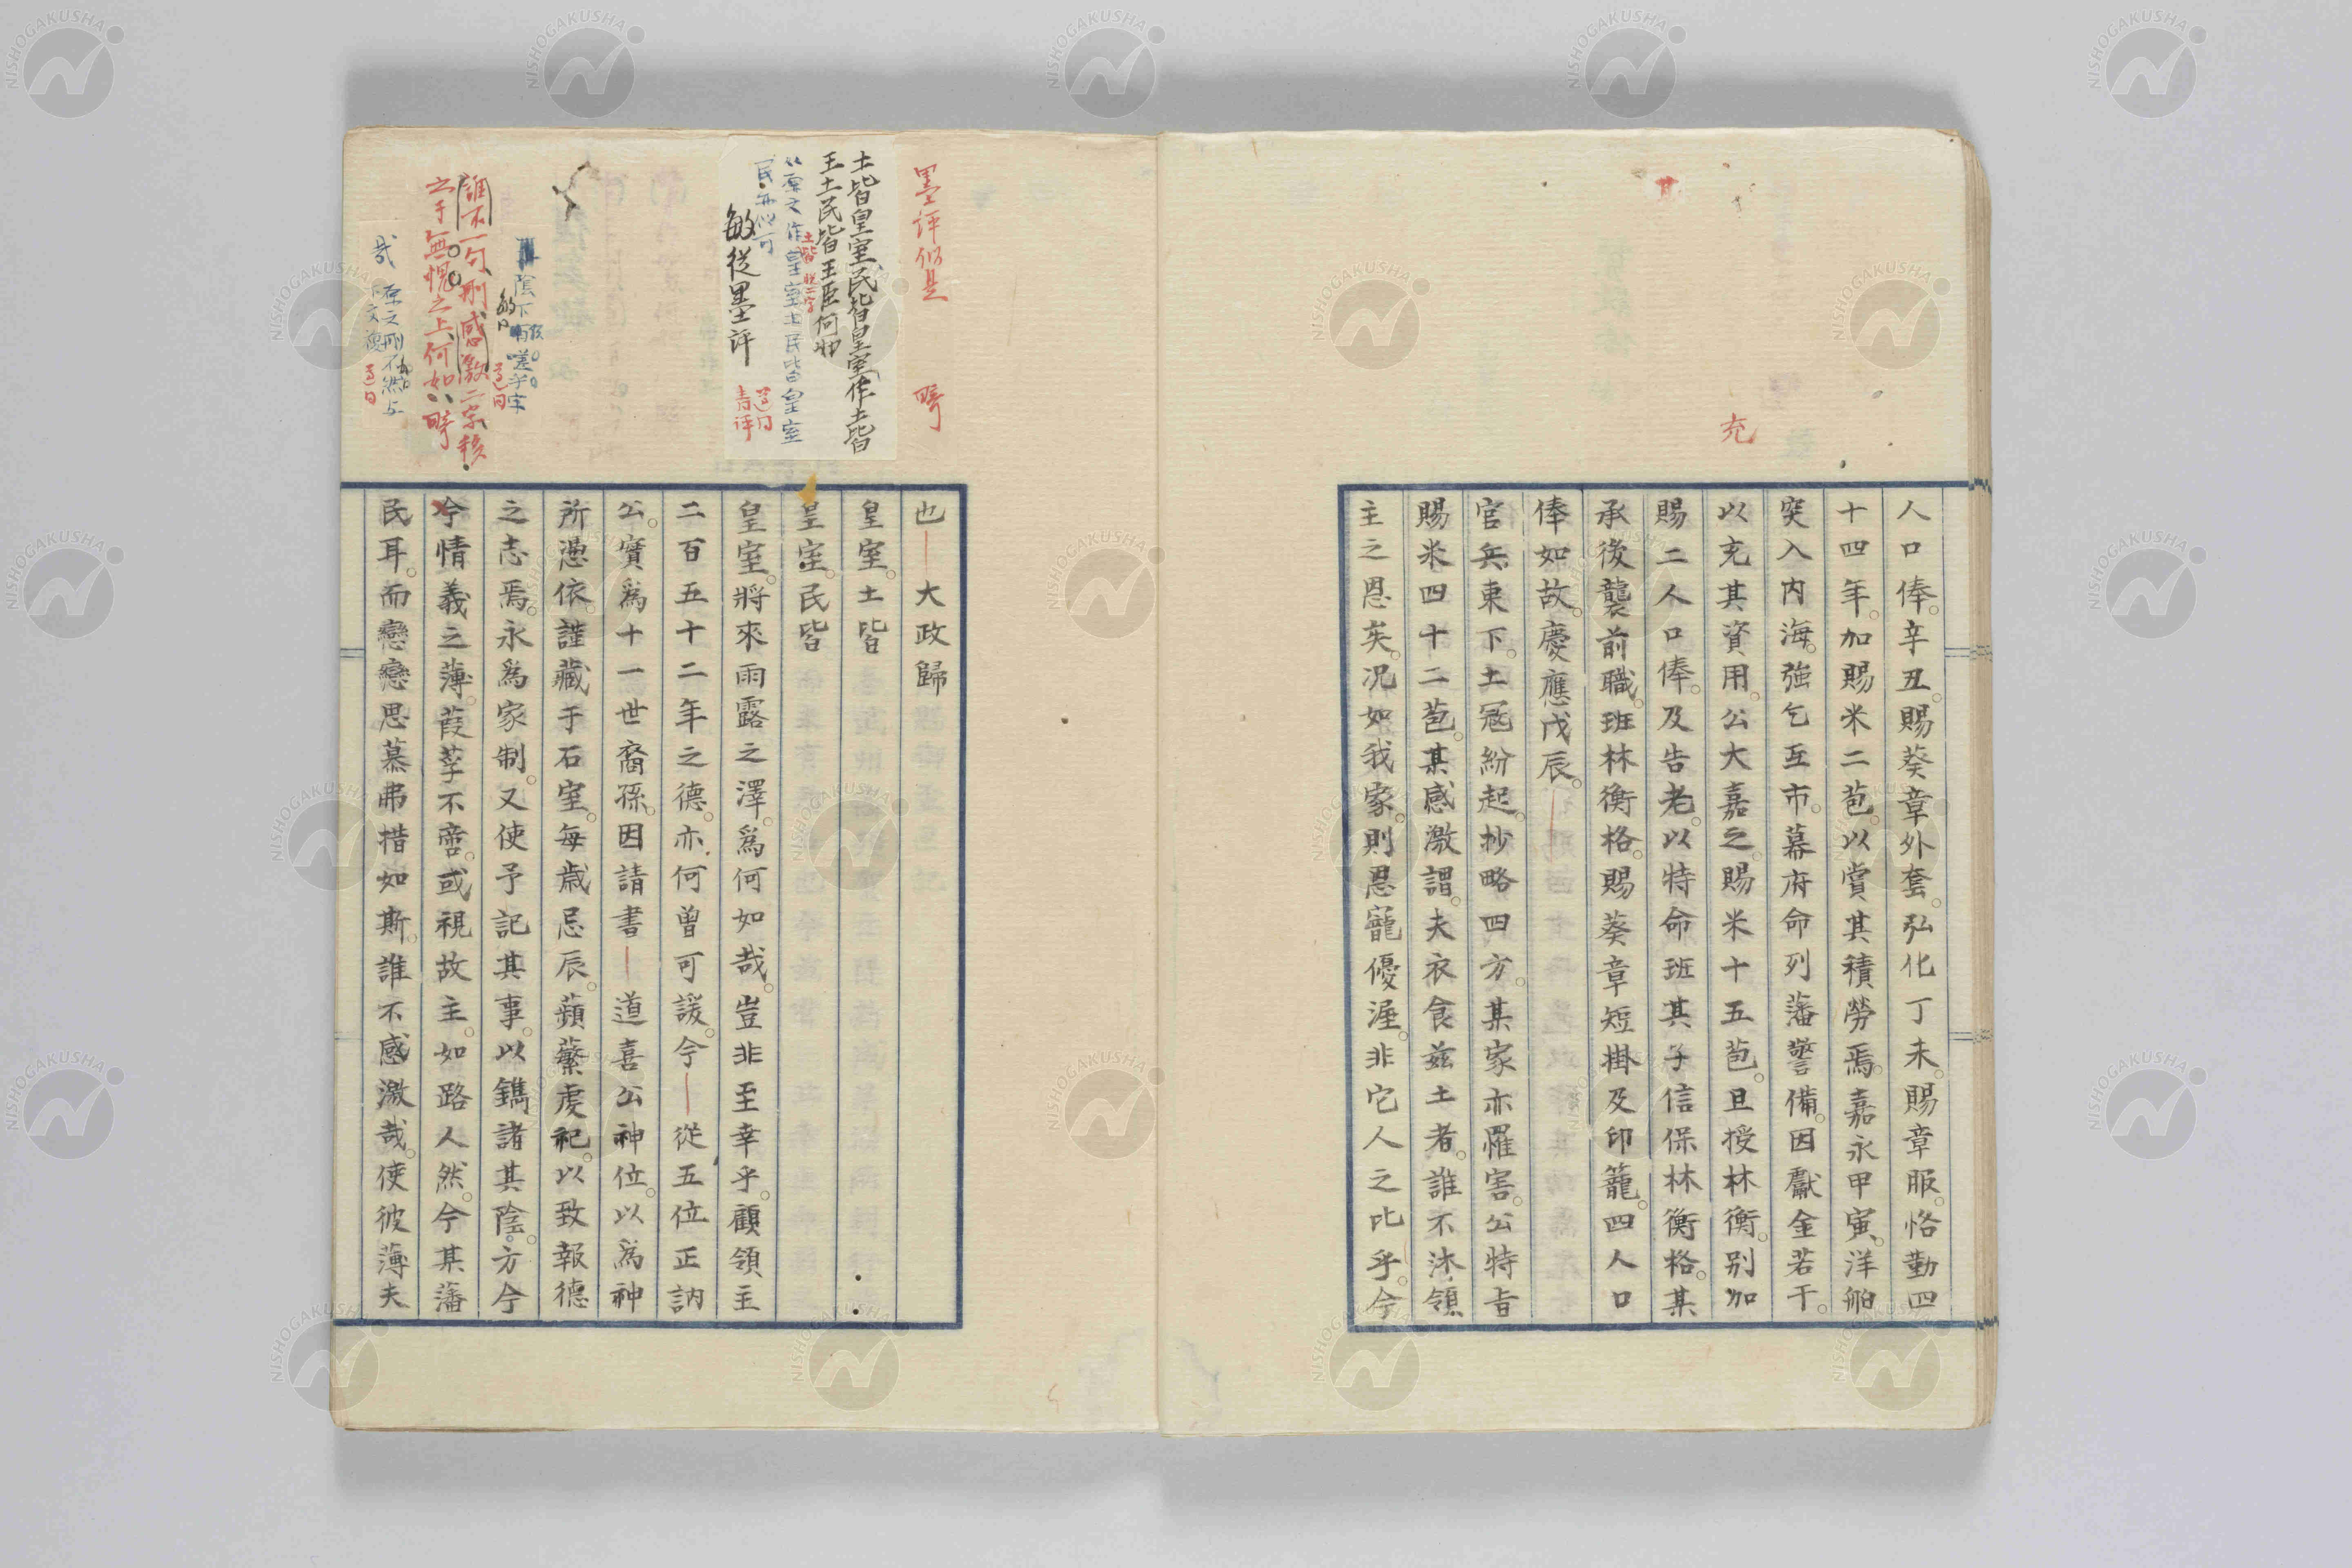 其
充
人口俸。辛丑。賜葵章外套。弘化丁未。賜章服。恪勤四
十四年。加賜米二苞。以賞其積勞焉。嘉永甲寅。洋舶
突入内海。強乞互市。幕府命列藩警備。因獻金若干。
以充其資用。公大嘉之。賜米十五苞。且授林衡。別加
賜二人口俸。及告老。以特命班其子信保林衡格。某
承後襲前職。班林衡格。賜葵章短掛及印籠。四人口
俸如故。慶應戊辰。
官兵東下。土冦紛起。抄略四方。某家亦罹害。公特旨
賜米四十二苞。某感激謂。夫衣食茲土者。誰不沐領
主之恩矣。況如我家。則恩寵優渥。非它人之比乎。今
墨評似是 畸
土皆皇室民皆皇室作土皆
王土民皆王臣何如
原文作皇室土民皆皇室
土皆
民亦似可
敏從墨評
青評
陰下
嗟乎字
誰不一句刪感激二字移
之于無愧之上何如 畸
哉
也 大政歸
皇室。土皆
皇室。民皆
皇室。將來雨露之澤。爲何如哉。豈非至幸乎。顧領主
二百五十二年之德。亦何曾可諼。今 從五位正訥
公。實爲十一世裔孫。因請書 道喜公神位。以爲神
所憑依。謹藏于石室。每歲忌辰。蘋蘩虔祀。以致報德
之志焉。永爲家制。又使予記其事。以鐫諸其陰。方今
今情義之薄。葭莩不啻。或視故主。如路人然。今某藩
民耳。而戀戀思慕弗措如斯。誰不感激哉。使彼薄夫
NISHOGAKUSHA